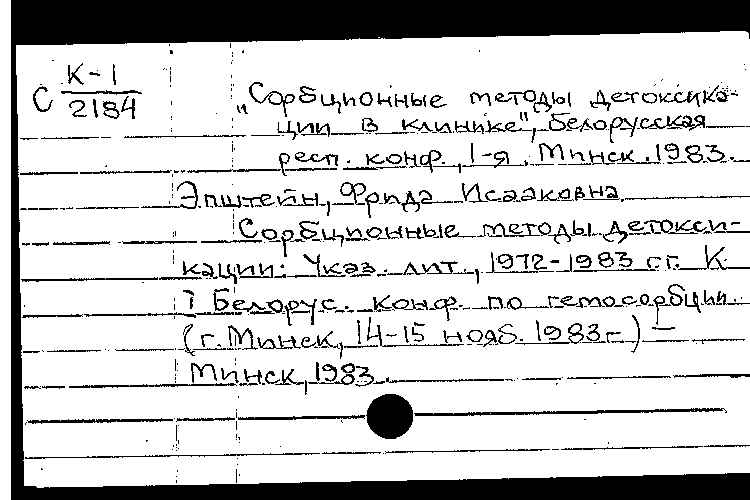 С К-1
2184
"Сорбционные методы детоксика-
ции в клинике", Белорусская
респ. конф., 1-я. Минск. 1983.
Эпштейн, Фрида Исааковна
Сорбционные методы детокси-
кации: Указ. лит., 1972-1983 г.г. К
I Белорус. конф. по гемосорбции
(г. Минск, 14-15 нояб. 1983г.) —
Минск, 1983.